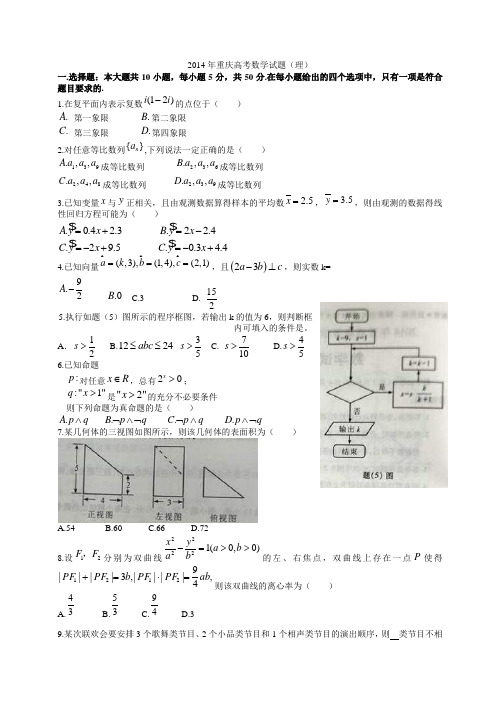 2014年重庆高考数学试题（理）
一.选择题：本大题共10小题，每小题5分，共50分.在每小题给出的四个选项中，只有一项是符合
题目要求的.
1.在复平面内表示复数i(1−2i)的点位于（ ）
A. 第一象限 B.第二象限
C. 第三象限 D.第四象限
2.对任意等比数列{aₙ},下列说法一定正确的是（ ）
A.a₁,a₃,a₉成等比数列 B.a₂,a₃,a₆成等比数列
C.a₂,a₄,a₈成等比数列 D.a₃,a₆,a₉成等比数列
3.已知变量x与y正相关，且由观测数据算得样本的平均数x=2.5，y=3.5，则由观测的数据得线
性回归方程可能为（ ）
A.y=0.4x+2.3 B.y=2x−2.4
C.y=−2x+9.5 C.y=−0.3x+4.4
4.已知向量a=(k,3),b=(1,4),c=(2,1)，且(2a−3b)⊥c，则实数k=
A.−9/2 B.0 C.3 D. 15/2
5.执行如题（5）图所示的程序框图，若输出k的值为6，则判断框
内可填入的条件是。
A. s>1/2 B.12≤abc≤24 s>3/5 C. s>7/10 D.s>4/5
开始
k=9，s=1
是
k=k−1
s=s·k/(k+1)
否
输出k
结束
题(5)图
6.已知命题
p:对任意x∈R，总有2ˣ>0；
q:"x>1"是"x>2"的充分不必要条件
则下列命题为真命题的是（ ）
A.p∧q B.¬p∧¬q C.¬p∧q D.p∧¬q
7.某几何体的三视图如图所示，则该几何体的表面积为（ ）
5
2
4
3
正视图 左视图 俯视图
A.54 B.60 C.66 D.72
8.设F₁，F₂分别为双曲线x²/a²−y²/b²=1(a>0,b>0)的左、右焦点，双曲线上存在一点P使得
|PF₁|+|PF₂|=3b,|PF₁|·|PF₂|=9/4ab,则该双曲线的离心率为（ ）
A.4/3 B.5/3 C.9/4 D.3
9.某次联欢会要安排3个歌舞类节目、2个小品类节目和1个相声类节目的演出顺序，则 类节目不相